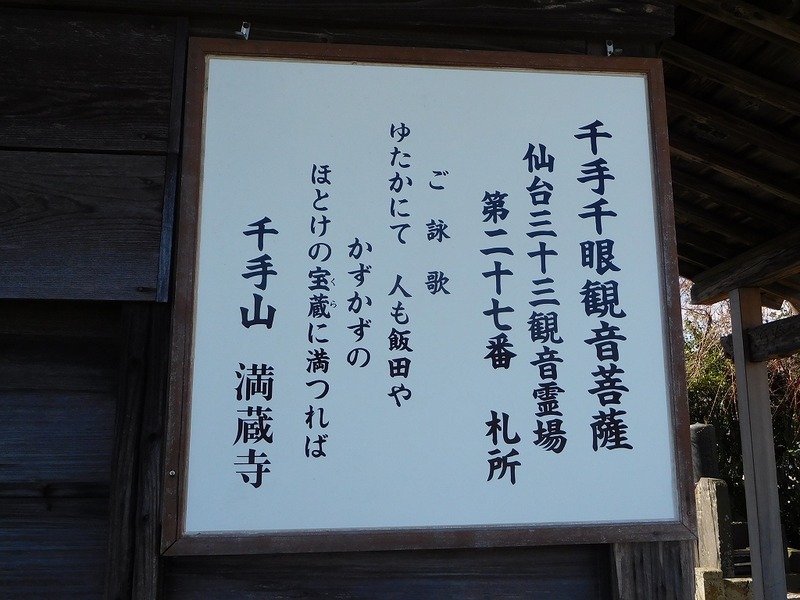 千手千眼観音菩薩
仙台三十三観音霊場
第二十七番 札所
ご詠歌
ゆたかにて 人も飯田や
かずかずの
ほとけの宝蔵に満つれば
くら
千手山 満蔵寺